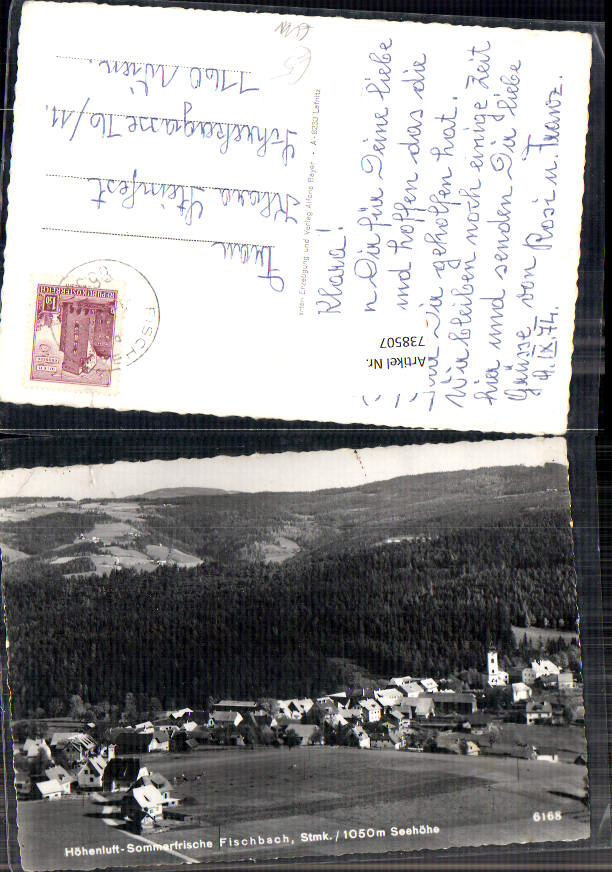 Klara!
n Dir für Deine liebe
und hoffen das die
Dir geholfen hat.
Wir bleiben noch einige Zeit
hier und senden Dir liebe
Grüsse von Rosi u. Franz.
9.IX.74.
Artikel Nr.
738507
Erzeugung und Verlag Alfons Bayer · A-8233 Lafnitz
Frau
Klara Steinfest
76/11.
1160 Wien.
REPUBLIK ÖSTERREICH
1.50
FISCH
Höhenluft-Sommerfrische Fischbach, Stmk./1050m Seehöhe
6168